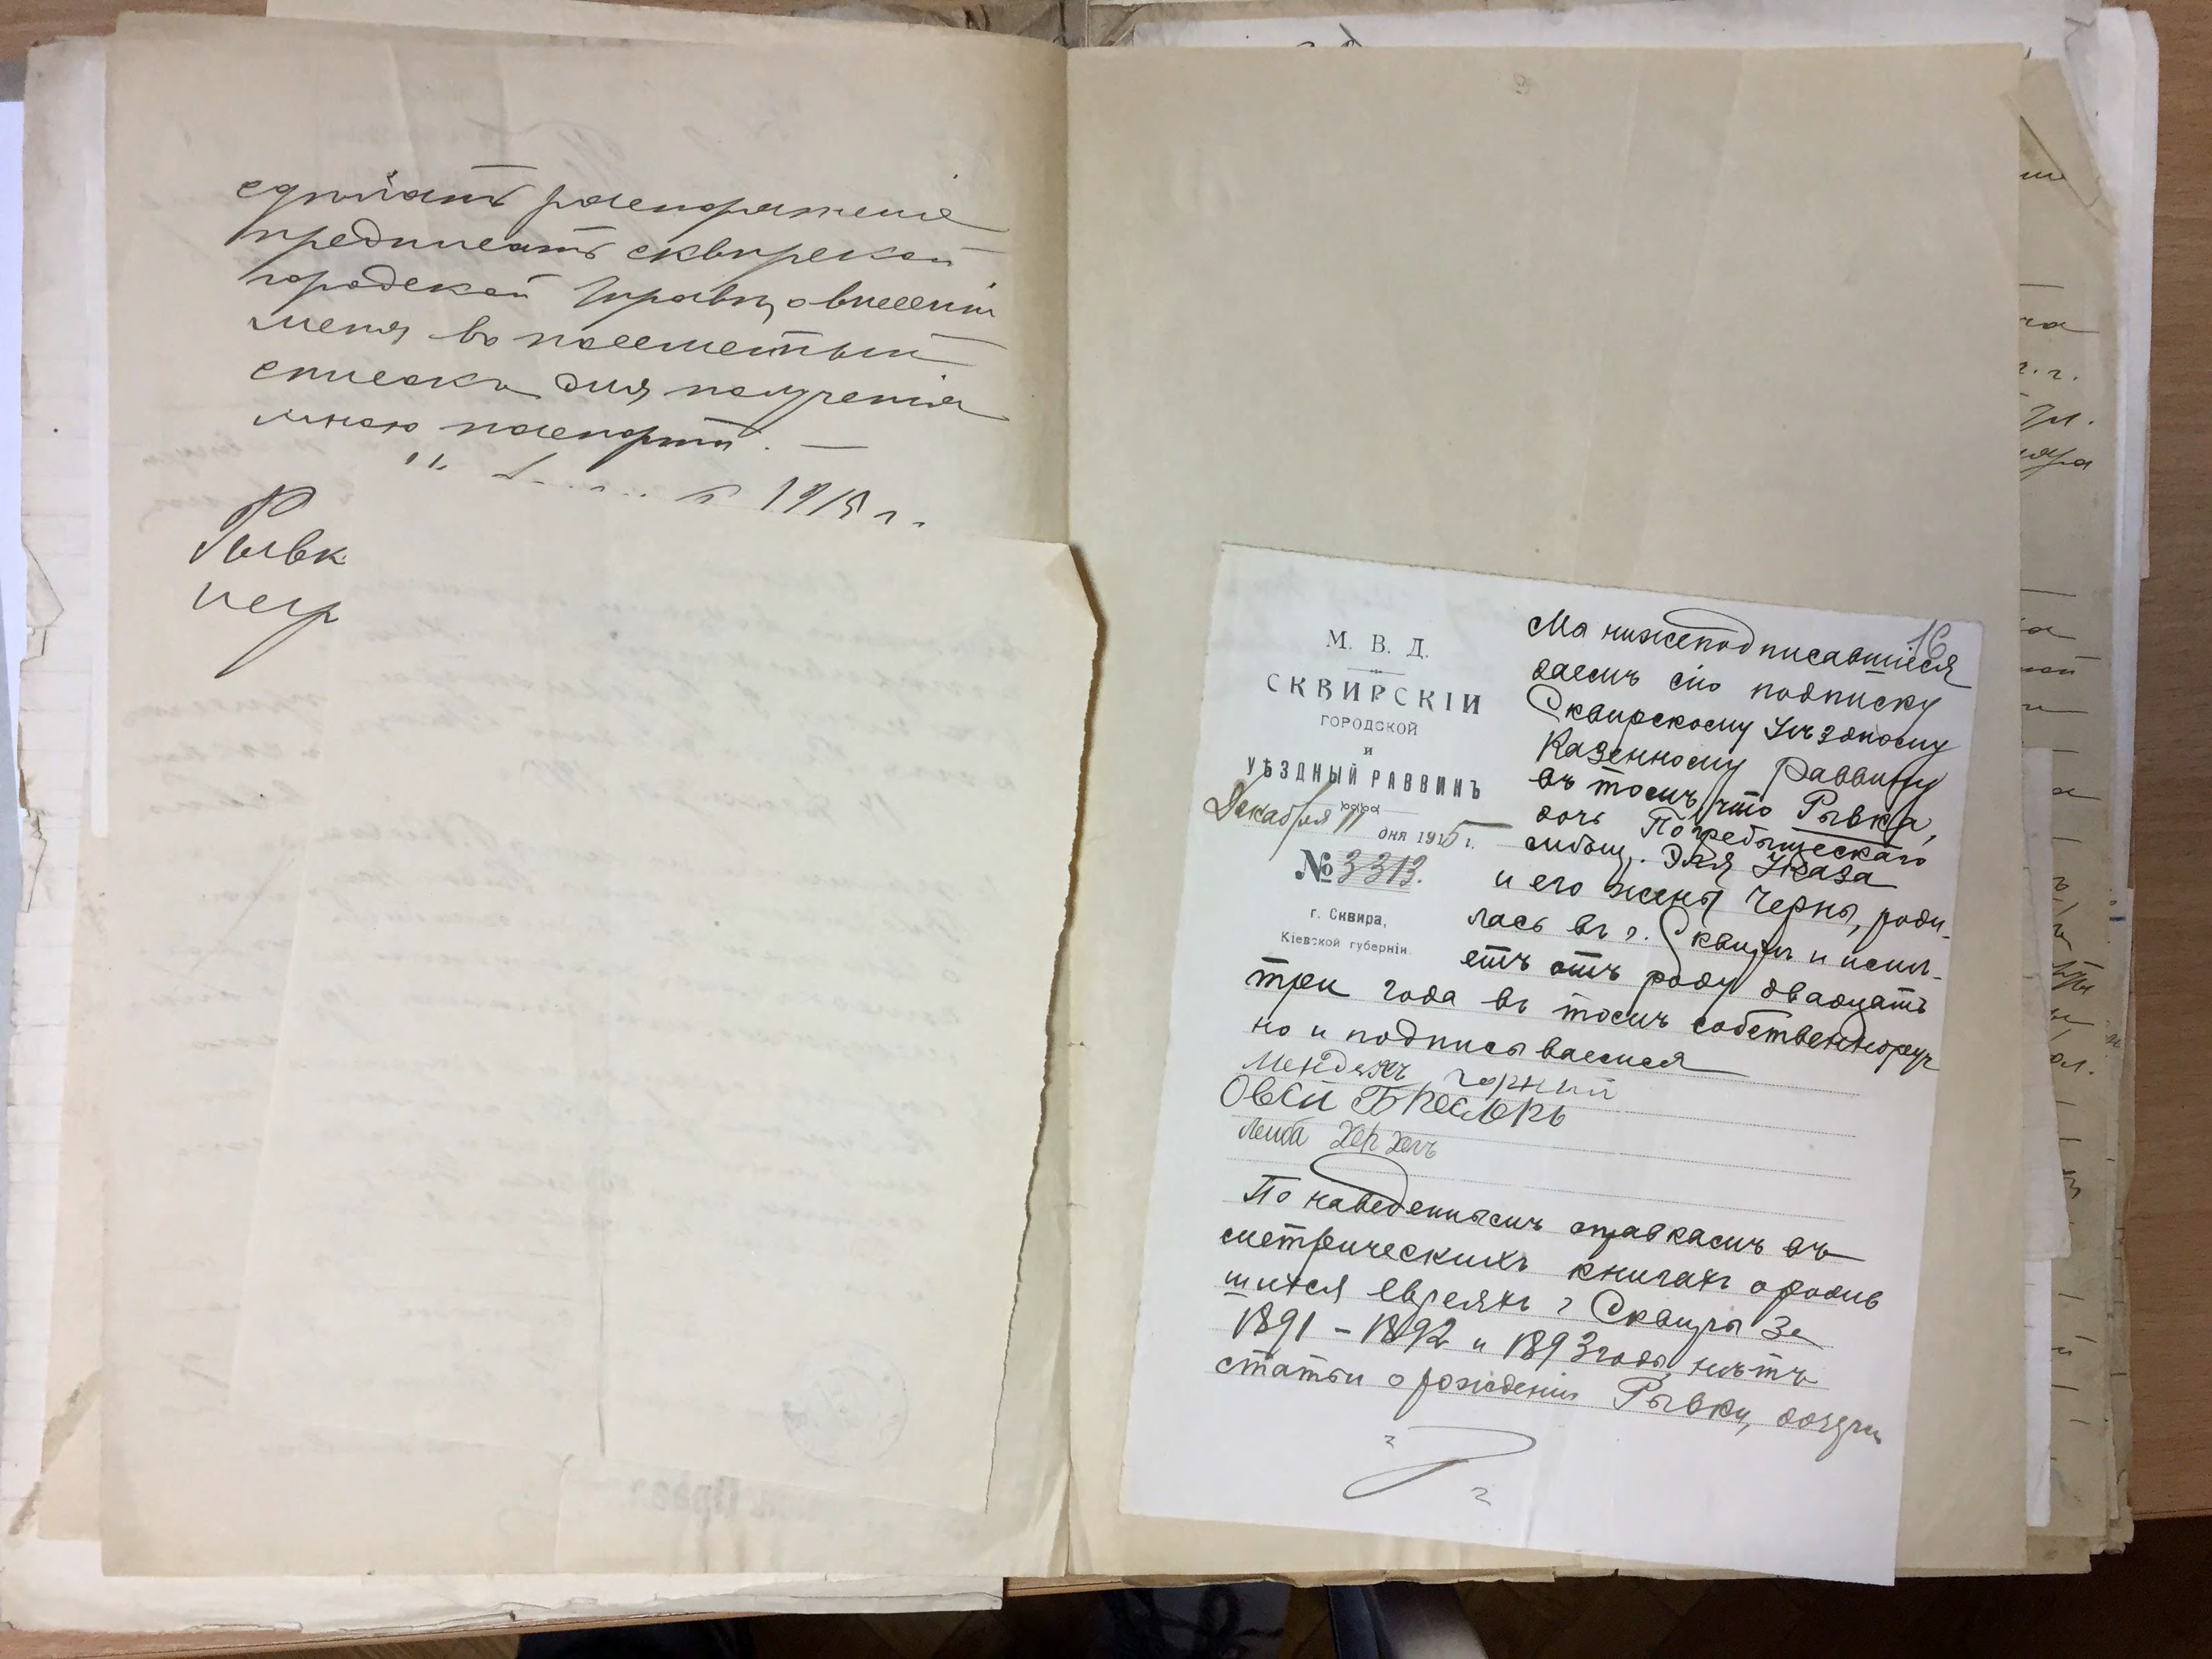 сдѣлать распоряженіе
предписать сквирской
городской Управѣ, о внесеніи
меня въ посемейный
списокъ для полученія
мною паспорта. —
1915 г.
Рывк
16
М. В. Д.
СКВИРСКІЙ
ГОРОДСКОЙ
и
УѢЗДНЫЙ РАВВИНЪ
Декабря 11 дня 1915 г.
№ 3313.
г. Сквира,
Кіевской губерніи
Мы нижеподписавшіеся
даемъ сію подписку
Сквирскому Уѣздному
Казенному Раввину
въ томъ, что Рывка,
дочь Погребыщескаго
мѣщ. Эля Указа
и его жены Черны, роди-
лась въ г. Сквирѣ и имѣ-
етъ отъ роду двадцать
три года въ томъ собственноруч
но и подписываемся
Мендель Чорный
Овсей Бреслеръ
Лейба
По наведеннымъ справкамъ въ
метрическихъ книгахъ о родив
шихся евреяхъ г Сквиры за
1891 – 1892 и 1893 годы нѣтъ
статьи о рожденіи Рывки, дочери